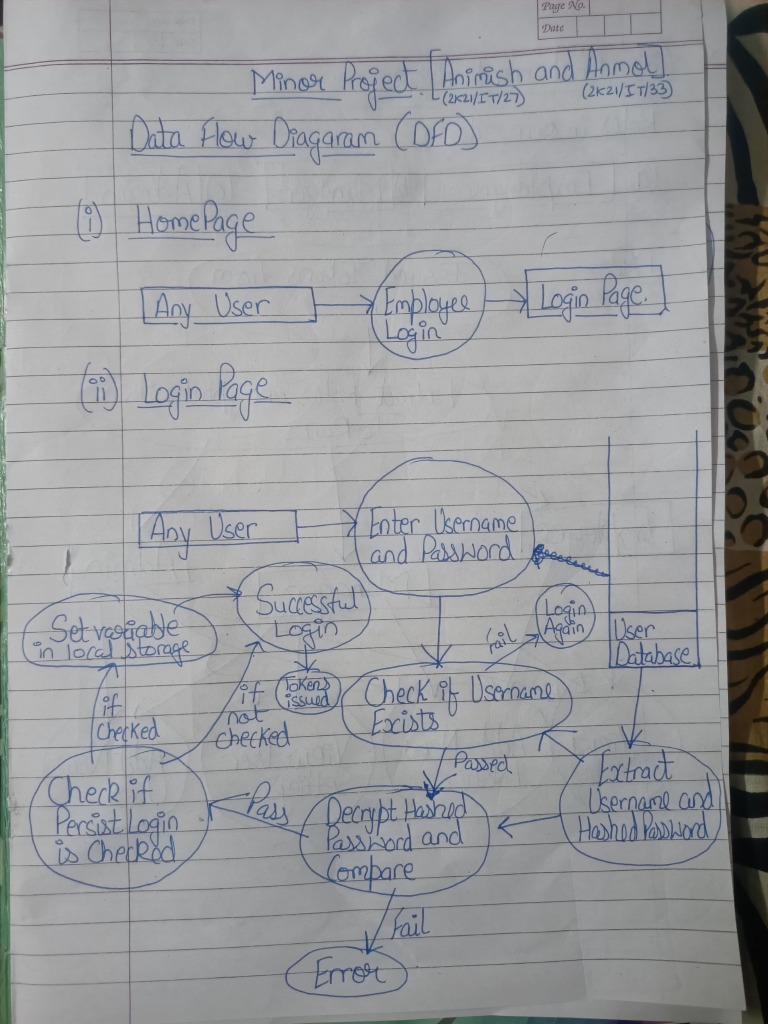 Page No.
Date
Minor Project [Animish and Anmol]
(2K21/IT/27) (2K21/IT/33)
Data Flow Diagaram (DFD)
(i) HomePage
Any User
Employee
Login
Login Page.
(ii) Login Page
Any User
Enter Username
and Password
Successful
Login
Set variable
in local storage
Login
Again
User
Database
fail
Tokens
issued
Check if Username
Exists
if
checked
if
not
checked
Passed
Extract
Username and
Hashed Password
Check if
Persist Login
is Checked
Pass
Decrypt Hashed
Password and
Compare
Fail
Error